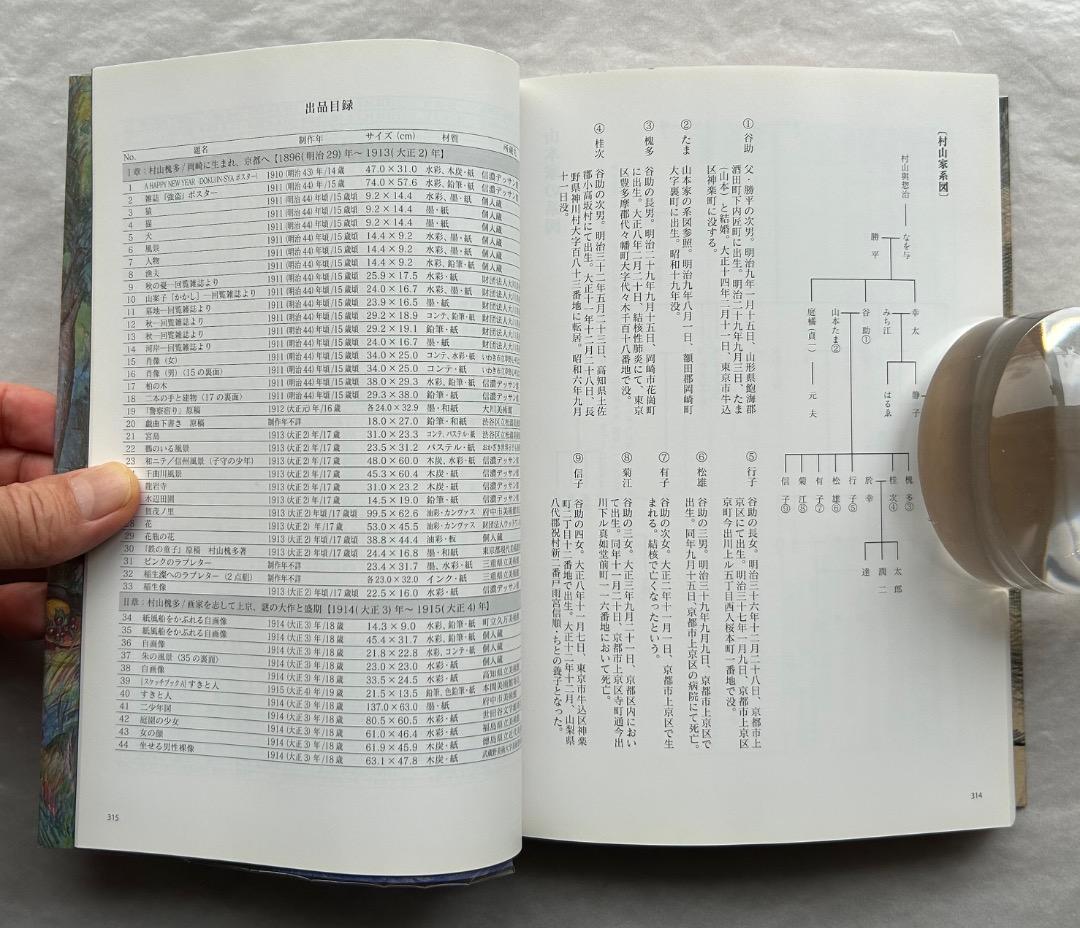 〔村山家系図〕
村山與惣治
なを与
勝平
幸太
みち江
谷助①
山本たま②
庭橘(貞二)
はるゑ
静子
元夫
槐多③
桂次④
於幸
行子⑤
松雄⑥
有子⑦
菊江⑧
信子⑨
太郎
潤二
達
① 谷助
父・勝平の次男。明治九年一月十五日、山形県飽海郡
酒田町下内匠町に出生。明治二十九年九月三日、たま
(山本)と結婚。大正十四年二月十一日、東京市牛込
区神楽町に没する。
② たま
山本家の系図参照。明治九年八月一日、額田郡岡崎町
大字裏町に出生。昭和十九年没。
③ 槐多
谷助の長男。明治二十九年九月十五日、岡崎市花崗町
に出生。大正八年二月二十日、結核性肺炎にて、東京
区豊多摩郡代々幡町大字代々木千百十八番地で没。
④ 桂次
谷助の次男。明治三十二年五月二十三日、高知県土佐
郡小高坂村にて出生。大正十一年十二月二十八日、長
野県神川村大字百八十三番地に転居。昭和六年九月
十一日没。
⑤ 行子
谷助の長女。明治三十六年十二月二十八日、京都市上
京区にて出生。明治三十七年一月九日、京都市上京区
京町今出川上ル五丁目西入桜本町一番地で没。
⑥ 松雄
谷助の三男。明治三十九年九月九日、京都市上京区で
出生。同年九月十五日、京都市上京区の病院にて死亡。
⑦ 有子
谷助の次女。大正二年十一月一日、京都市上京区で生
まれる。結核で亡くなったという。
⑧ 菊江
谷助の三女。大正三年九月二十一日、京都区内におい
て出生。同年十一月二十日、京都市上京区寺町通今出
川下ル真如堂前町一一六番地において死亡。
⑨ 信子
谷助の四女。大正八年十一月七日、東京市牛込区神楽
町二丁目十二番地で出生。大正十二年十二月、山梨県
八代郡祝村新二番戸雨宮信順・ちとの養子となった。
314
出品目録
No. 題名 制作年 サイズ (cm) 材質
I章：村山槐多/岡崎に生まれ、京都へ【1896(明治29)年〜1913(大正2)年】
1 A HAPPY NEW YEAR (DOKUJIN-SYA ポスター) 1910 (明治43)年/14歳 47.0×31.0 水彩、木炭・紙 信濃デッサン
2 雑誌『強盗』ポスター 1911 (明治44)年/15歳 74.0×57.6 水彩、鉛筆・紙 信濃デッサン
3 猿 1911 (明治44)年頃/15歳頃 9.2×14.4 水彩、墨・紙 個人蔵
4 猫 1911 (明治44)年頃/15歳頃 9.2×14.4 墨・紙 個人蔵
5 犬 1911 (明治44)年頃/15歳頃 14.4×9.2 墨・紙 個人蔵
6 風景 1911 (明治44)年頃/15歳頃 14.4×9.2 水彩、墨・紙 個人蔵
7 人物 1911 (明治44)年頃/15歳頃 14.4×9.2 水彩、鉛筆・紙 個人蔵
8 漁夫 1911 (明治44)年頃/15歳頃 25.9×17.5 水彩・紙 財団法人大川
9 秋の憂―回覧雑誌より 1911 (明治44)年頃/15歳頃 24.0×16.7 水彩、墨・紙 財団法人大川
10 山案子「かかし」―回覧雑誌より 1911 (明治44)年頃/15歳頃 23.9×16.5 墨・紙 財団法人大川
11 墓地―回覧雑誌より 1911 (明治44)年頃/15歳頃 29.2×18.9 コンテ、鉛筆・紙 財団法人大川
12 秋―回覧雑誌より 1911 (明治44)年頃/15歳頃 29.2×19.1 鉛筆・紙 財団法人大川
13 秋―回覧雑誌より 1911 (明治44)年頃/15歳頃 29.4×16.6 墨・紙 財団法人大川
14 河岸―回覧雑誌より 1911 (明治44)年頃/15歳頃 34.0×25.0 コンテ、水彩・紙
15 肖像(女) 1911 (明治44)年頃/15歳頃 34.0×25.0 コンテ・紙
16 肖像(男)(15の裏面) 1911 (明治44)年頃/15歳頃 38.0×29.3 水彩、鉛筆・紙 信濃デッサン
17 柏の木 1911 (明治44)年頃/15歳頃 29.3×38.0 鉛筆・紙 信濃デッサン
18 二本の手と建物(17の裏面)
19 「警察狩り」原稿 1912 (大正元)年/16歳 各24.0×32.9 墨・和紙 大川美術館
20 戯曲下書き 原稿 制作年不詳 18.0×27.0 鉛筆・和紙 渋谷区立松濤美術
21 宮島 1913 (大正2)年/17歳 31.0×23.3 コンテ、パステル・紙 渋谷区立松濤美術
22 鶴のいる風景 1913 (大正2)年/17歳 23.5×31.2 パステル・紙
23 和ニテ/信州風景(子守の少年) 1913 (大正2)年/17歳 48.0×60.0 木炭、水彩・紙 信濃デッサン
千曲川風景 1913 (大正2)年/17歳 45.3×60.4 木炭・紙 信濃デッサン
龍岩寺 1913 (大正2)年/17歳 31.0×23.2 木炭・紙 信濃デッサン
水辺田園 1913 (大正2)年/17歳 14.5×19.0 鉛筆・紙 府中市美術
無茂ノ里 1913 (大正2)年/17歳頃 99.5×62.6 油彩・カンヴァス
28 花 1913 (大正2)年/17歳頃 53.0×45.5 油彩・カンヴァス 財団法人ウッドワン
29 花瓶の花 1913 (大正2)年頃/17歳頃 38.8×44.4 油彩・板 個人蔵
30 「鉄の童子」原稿 村山槐多著 1913 (大正2)年頃/17歳頃 24.4×16.8 墨・和紙 東京都現代美術
31 ピンクのラブレター 制作年不詳 23.4×31.7 墨、水彩・紙 三重県立美術
32 稲生澯へのラブレター(2点組) 制作年不詳 各23.0×32.0 インク・紙 三重県立美術
33 稲生像 1913 (大正2)年頃/17歳頃 22.5×16.0 水彩・紙 信濃デッサン
II章：村山槐多/画家を志して上京、謎の大作と盛期【1914(大正3)年〜1915(大正4)年】
34 紙風船をかぶれる自画像 1914 (大正3)年/18歳 14.3×9.0 水彩、鉛筆・紙 町立久万美術
35 紙風船をかぶれる自画像 1914 (大正3)年/18歳 45.4×31.7 水彩、墨・紙 個人蔵
36 自画像 1914 (大正3)年/18歳 21.8×22.8 水彩、コンテ・紙 個人蔵
37 朱の風景(35の裏面) 1914 (大正3)年/18歳 23.0×23.0 水彩・紙 個人蔵
38 自画像 1914 (大正3)年/18歳 33.5×24.5 水彩・紙 高知県立美術
39 [スケッチブックA]すすきと人 1915 (大正4)年/19歳 21.5×13.5 鉛筆、色鉛筆・紙 本間美術館
40 すすきと人 1914 (大正3)年/18歳 137.0×63.0 墨・紙 府中市美術
41 二少年図 1914 (大正3)年/18歳 80.5×60.5 水彩・紙 世田谷文学館
42 庭園の少女 1914 (大正3)年/18歳 61.0×46.4 水彩・紙 福島県立美術
43 女の顔 1914 (大正3)年/18歳 61.9×45.9 木炭・紙 徳島県立近代美術
44 坐せる男性裸像 1914 (大正3)年/18歳 63.1×47.8 木炭・紙 武蔵野美術大学
315